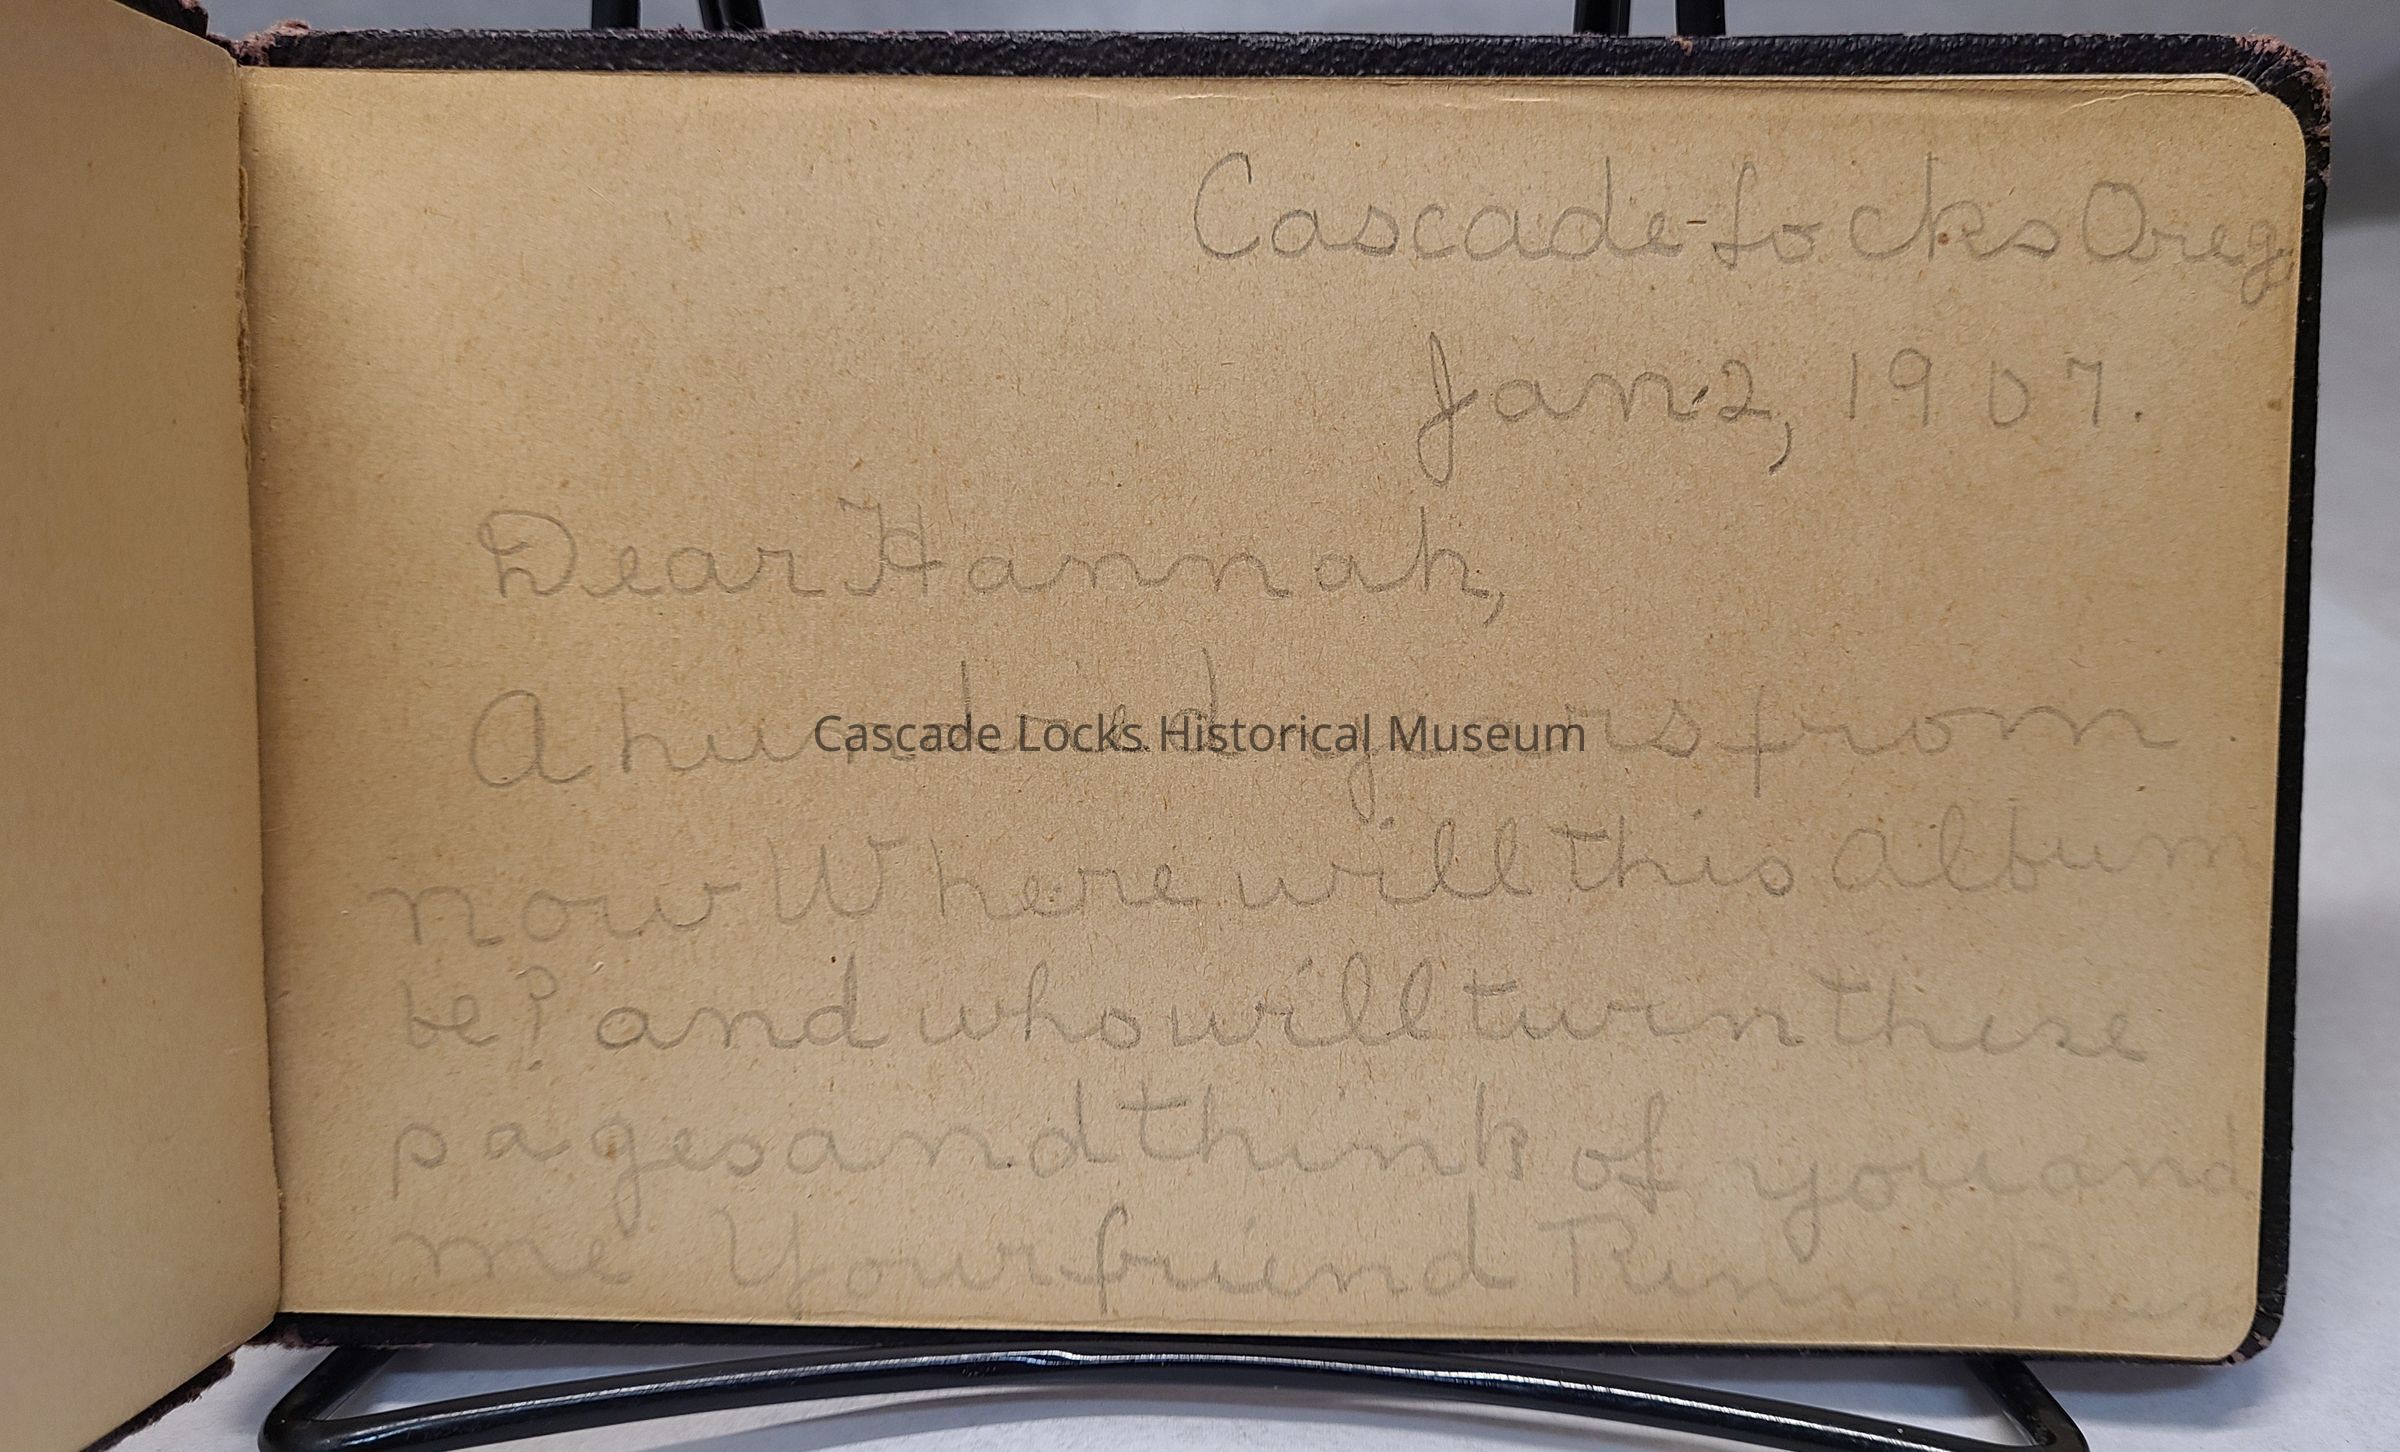 Cascade-Locks Oreg.
Jan. 2, 1907.
Dear Hannah,
A hundred years from
now Where will this album
be? and who will turn these
pages and think of you and
me Your friend
Cascade Locks Historical Museum